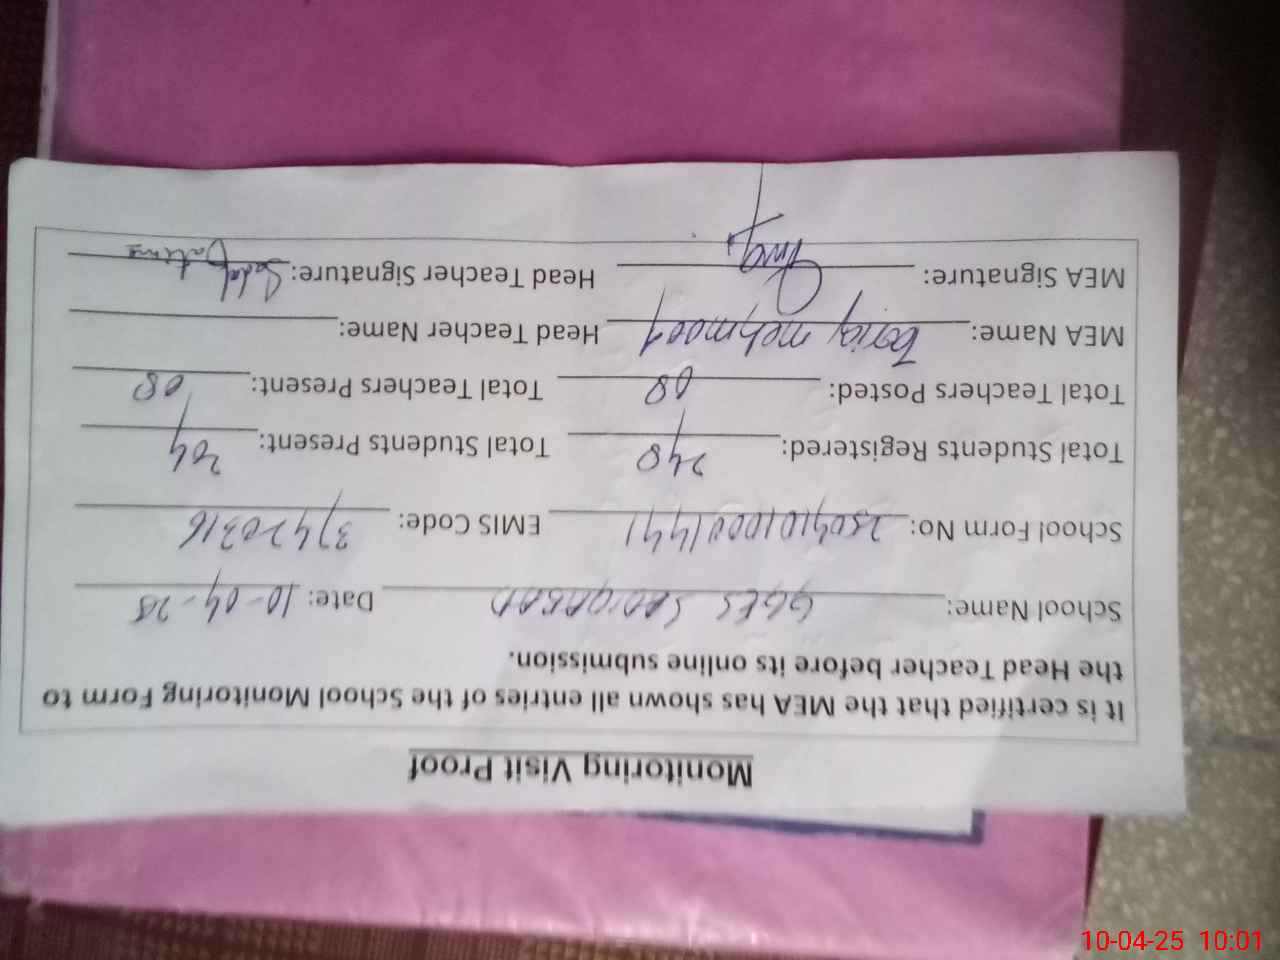 Monitoring Visit Proof
It is certified that the MEA has shown all entries of the School Monitoring Form to
the Head Teacher before its online submission.
School Name: GGES SADIQABAD Date: 10-04-25
School Form No: 25041010001441 EMIS Code: 37420316
Total Students Registered: 248 Total Students Present: 204
Total Teachers Posted: 08 Total Teachers Present: 08
MEA Name: Tariq mehmood Head Teacher Name:
MEA Signature: Head Teacher Signature: Sadaf Fatima
10-04-25 10:01